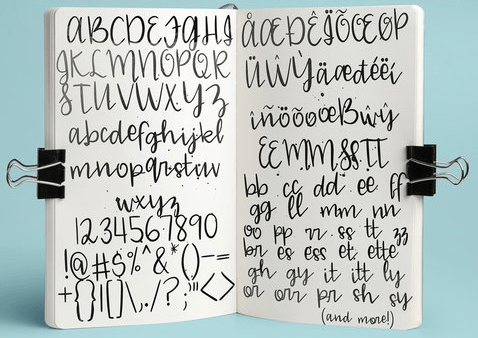 ABCDEFGHI
JKLMNOPQR
STUVWXYZ
abcdefghijkl
mnopqrstuv
wxyz
1234567890
!@#$%^&*()-=
+{}|[]\,./?;'"<>
ÅÆÐÊÏÕŒØP
ÜŴỲäæđéëí
îñöõøœßŵŷ
ŒEMMSSTT
bb cc dd ee ff
gg ll mm nn
oo pp rr ss tt zz
br es ess et ette
gh gy it itt ly
or orr pr sh sy
(and more!)